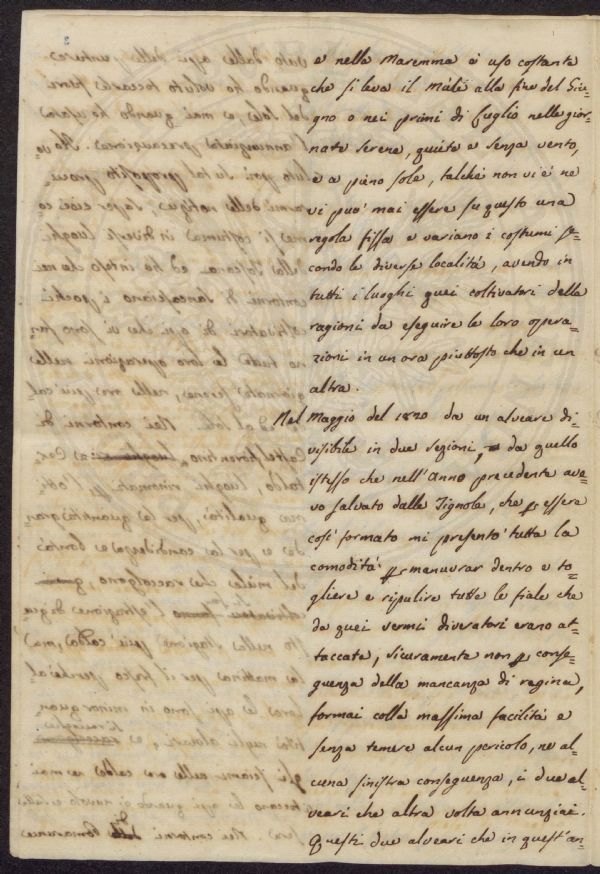 e nella Maremma è uso costante
che si leva il Miele alla fine del Giu-
gno o nei primi di Luglio nelle gior-
nate serene, quiete e senza vento,
e a pieno sole, talchè non vi è ne
vi può mai essere su questo una
regola fissa e variano i costumi se-
condo le diverse località, avendo in
tutti i luoghi quei coltivatori delle
ragioni da eseguire le loro opera-
zioni in un ora piuttosto che in un
altra.
Nel Maggio del 1820 da un alveare di-
visibile in due sezioni, da quello
istesso che nell'Anno precedente ave-
vo salvato dalla Tignola, che p essere
così formato mi presentò tutta la
comodità p manuvrar dentro e to-
gliere e ripulire tutte le fiale che
da quei vermi divoratori erano at-
taccate, sicuramente non p conse-
guenza della mancanza di regina,
formai colla massima facilità e
senza temere alcun pericolo, ne al-
cuna sinistra conseguenza, i due al-
veari che altra volta annunziai.
Questi due alveari che in quest'an-